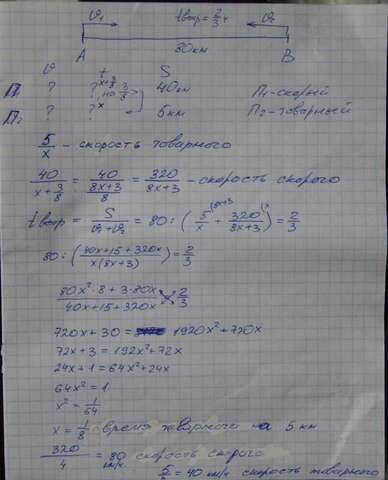 v₁ t встр = 2/3 ч v₂
A 80 км B
v t S
П₁ ? ? x+3/8 40 км П₁ - скорый
на 3/8
П₂ ? ? x 5 км П₂ - товарный
5/x - скорость товарного
40/(x+3/8) = 40/((8x+3)/8) = 320/(8x+3) - скорость скорого
t встр = S/(v₁+v₂) = 80 : (5/x + 320/(8x+3)) = 2/3
80 : ((40x+15+320x)/(x(8x+3))) = 2/3
(80x²·8+3·80x)/(40x+15+320x) = 2/3
720x + 30 = 1920x² + 720x
72x + 3 = 192x² + 72x
24x + 1 = 64x² + 24x
64x² = 1
x² = 1/64
x = 1/8 время товарного на 5 км
320/4 = 80 км/ч скорость скорого
= 40 км/ч скорость товарного